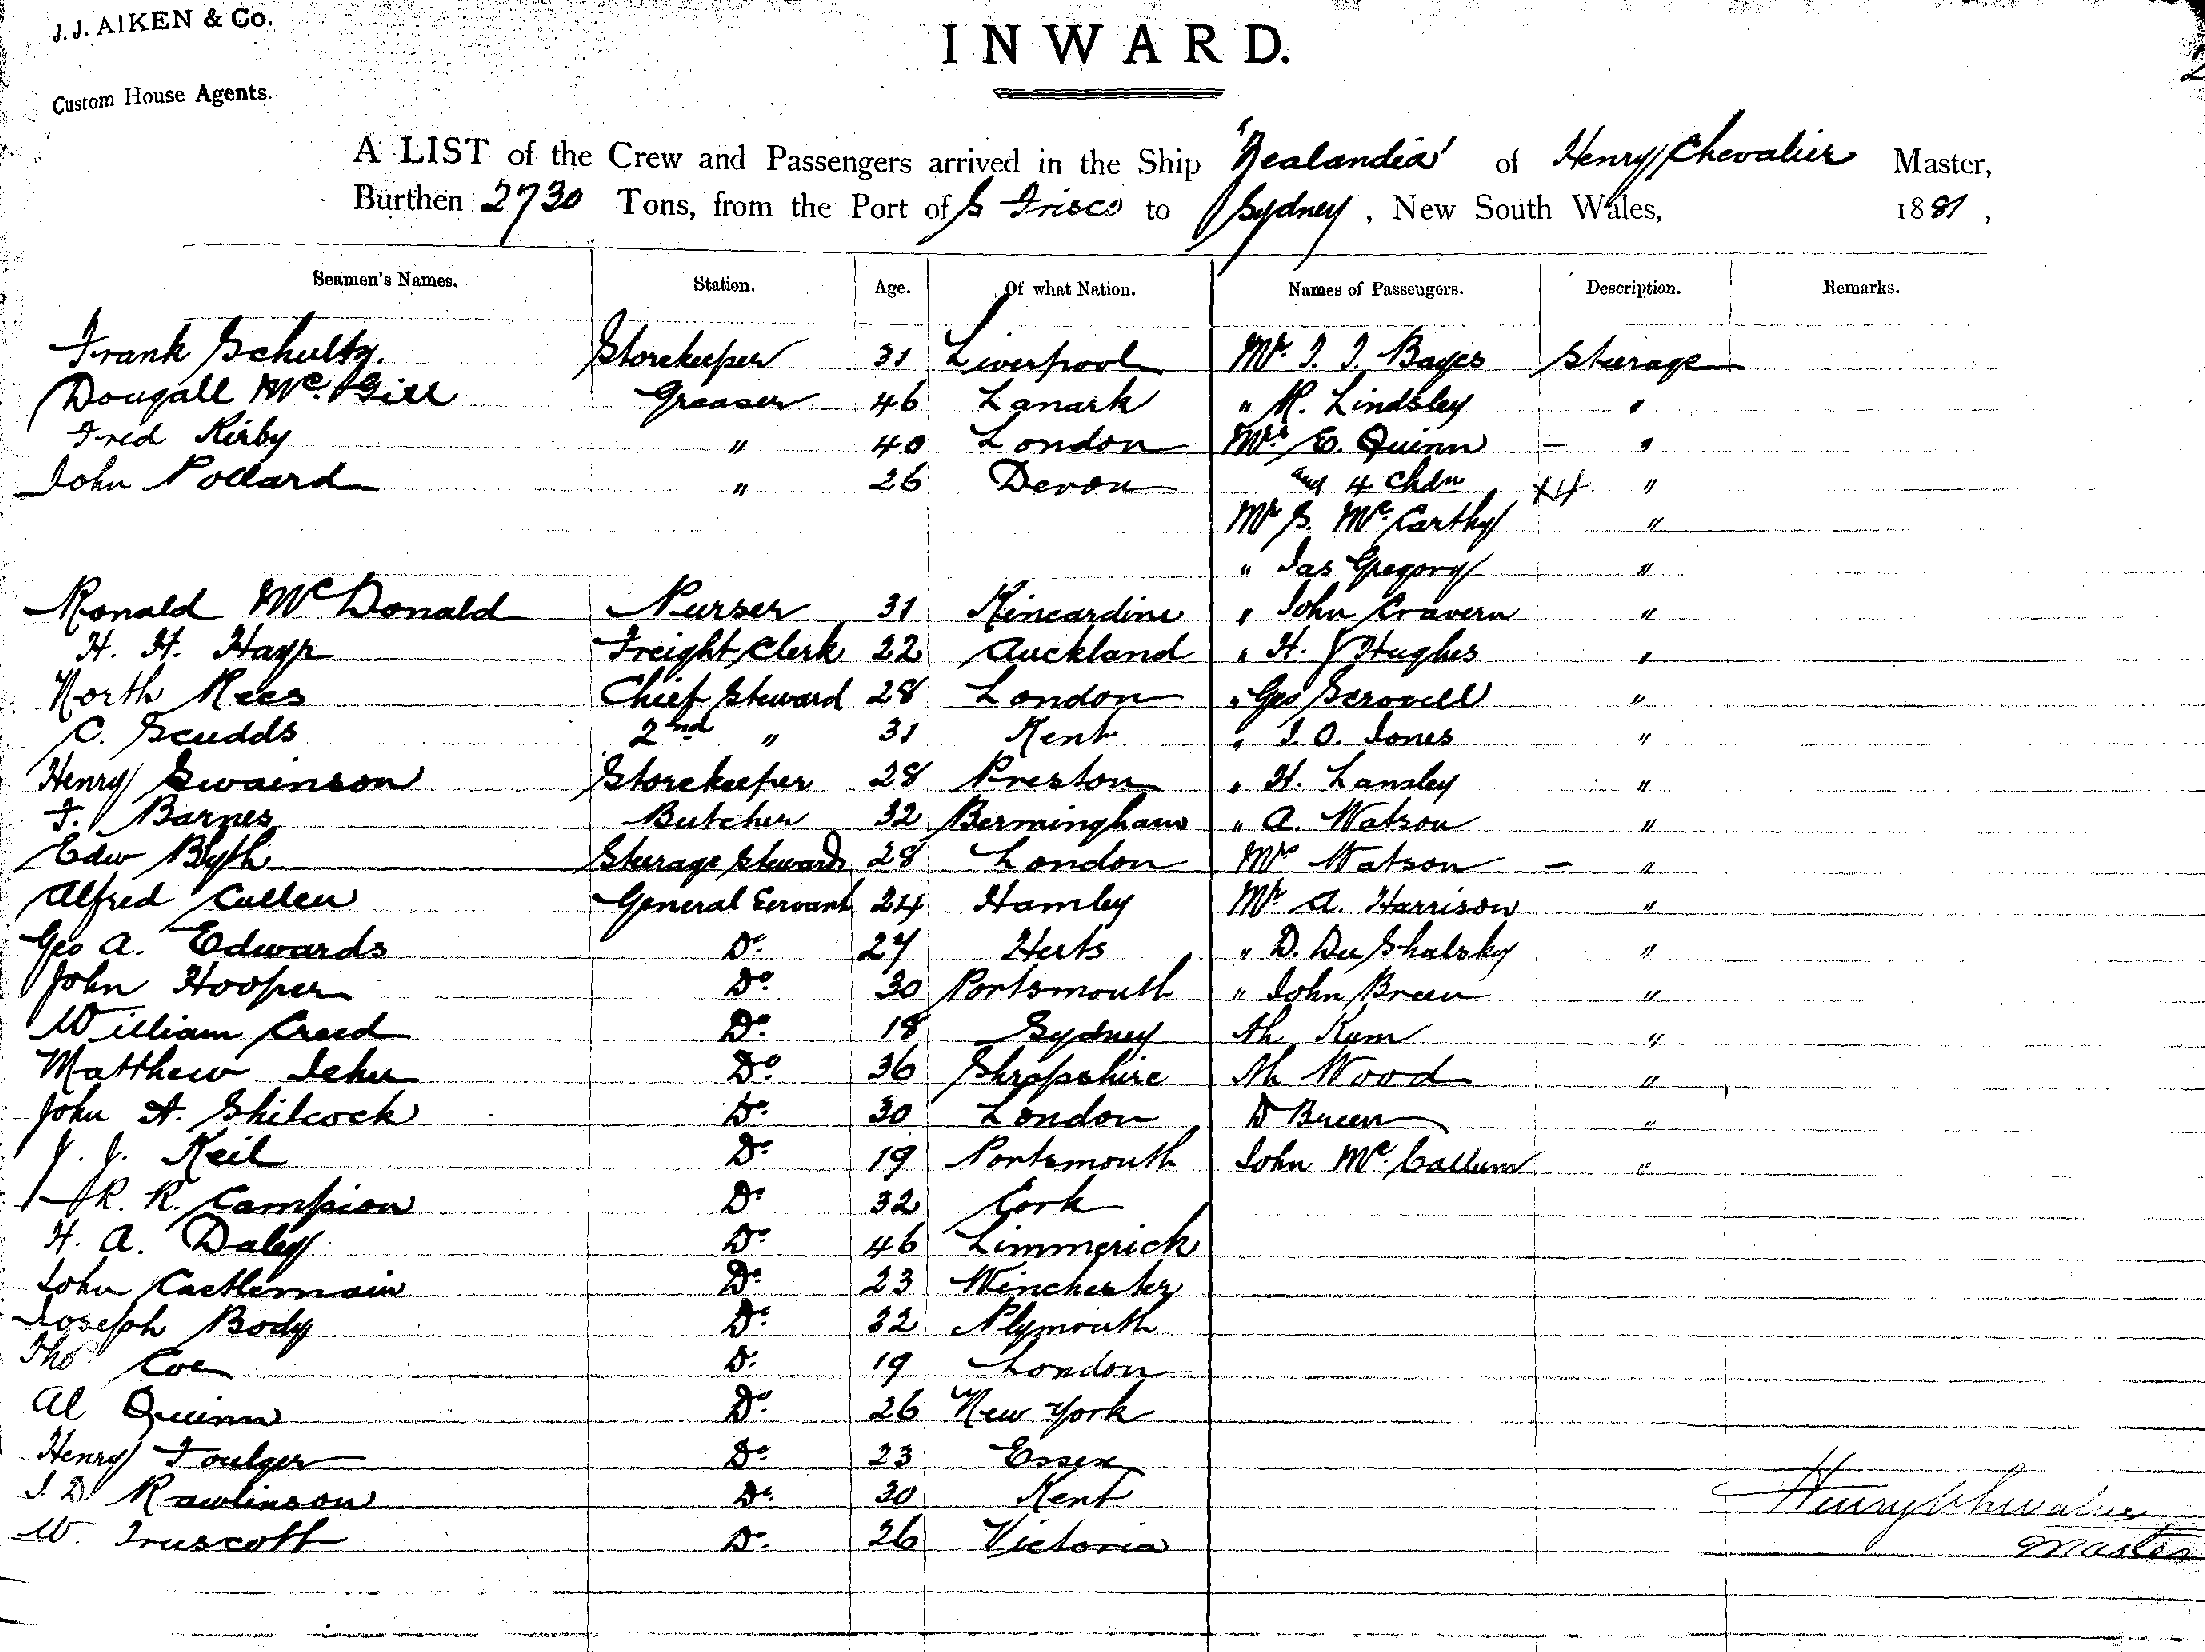 J. J. AIKEN & Co.
Custom House Agents.
INWARD.
A LIST of the Crew and Passengers arrived in the Ship 'Zealandia' of Henry Chevalier Master,
Burthen 2730 Tons, from the Port of S Frisco to Sydney, New South Wales, 1881,
Seamen's Names. Station. Age. Of what Nation. Names of Passengers. Description. Remarks.
Frank Schultz. Storekeeper 31 Liverpool Mr. Bayes Steerage
Dougall McGill Greaser 46 Lanark " R. Lindsley "
Fred Kirby " 40 London Mrs E. Quinn – "
John Pollard " 26 Devon and 4 Chdn X4 "
Mr S. McCarthy "
" Jas Gregory "
Ronald McDonald Purser 31 Kincardine " John Cravern "
H. H. Freight Clerk 22 Auckland " H. J Hughes "
North Rees Chief Steward 28 London " Geo Scrovell "
C. Scudds 2nd " 31 Kent " J. O. Jones "
Henry Swainson Storekeeper 28 Preston " H. Lansley "
F. Barnes Butcher 32 Bermingham " A. Watson "
Edw Blyth Steerage Steward 28 London Mrs Watson – "
Alfred Cullen General Servant 24 Hamley Mr A. Harrison "
Geo A. Edwards Do. 27 Herts " D. "
John Hooper Do. 30 Portsmouth " John Breen "
William Creed Do. 18 Sydney Ah Kum "
Matthew Do. 36 Shropshire Ah Wood "
John H. Shilcock Do. 30 London D Breen "
J. J. Keil Do. 19 Portsmouth John McCallum "
R. R. Campion Do. 32 Cork
H. A. Daley Do. 46 Limmerick
John Castlemain Do. 23 Winchester
Joseph Body Do. 32 Plymouth
Thos Coe Do. 19 London
Al Quinn Do. 26 New York
Henry Foulger Do. 23 Essex
J. D. Rawlinson Do. 30 Kent
W. Truscott Do. 26 Victoria
Henry Chevalier
Master